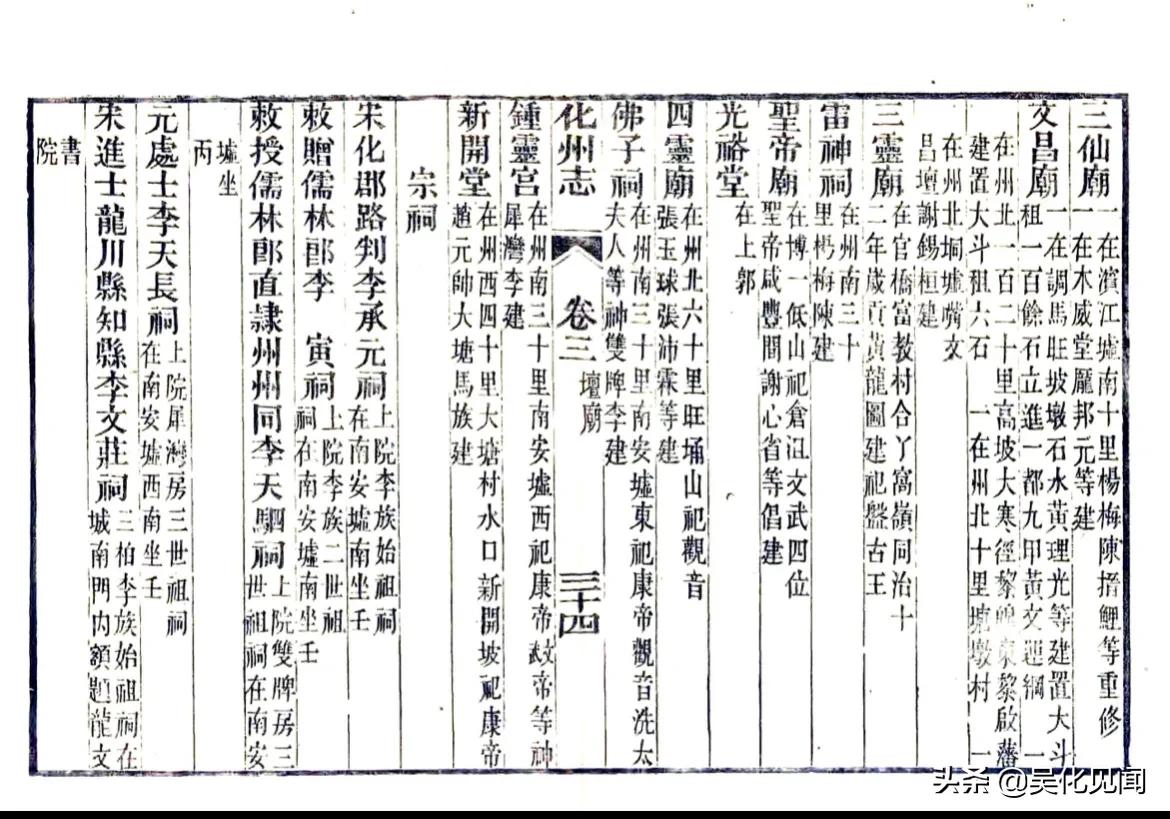 三仙廟
一在濱江墟南十里楊梅陳搢鯉等重修
一在木威堂龐邦元等建
文昌廟
一在調馬旺坡墩石水黃理光等建置大斗
租一百餘石立進一都九甲黃文綱 一
在州北一百二十里高坡大寒徑黎東黎啟藩
建置大斗租六石 一在州北十里墩村 一
在州北垌墟嘴文
昌壇謝錫桓建
三靈廟
在官橋富教村合丫窩嶺同治十
二年歲貢黃龍圖建祀盤古王
雷神祠
在州南三十
里梅陳建
聖帝廟
在博一低山祀倉沮文武四位
聖帝咸豐間謝心省等倡建
光裕堂
在上郭
四靈廟
在州北六十里旺埇山祀觀音
張玉球張沛霖等建
佛子祠
在州南三十里南安墟東祀康帝觀音洗太
夫人等神雙牌李建
化州志 卷三 壇廟 三十四
鍾靈宮
在州南三十里南安墟西祀康帝帝等神
犀灣李建
新開堂
在州西四十里大塘村水口新開坡祀康帝
趙元帥大塘馬族建
宗祠
宋化郡路判李承元祠
上院李族始祖祠
在南安墟南坐壬
敕贈儒林郎李 寅祠
上院李族二世祖
祠在南安墟南坐壬
敕授儒林郎直隸州州同李天駟祠
上院雙牌房三
世祖祠在南安
墟坐
丙
元處士李天長祠
上院犀灣房三世祖祠
在南安墟西南坐壬
宋進士龍川縣知縣李文莊祠
三柏李族始祖祠在
城南門內額題龍文
書
院
头条 @吴化见闻